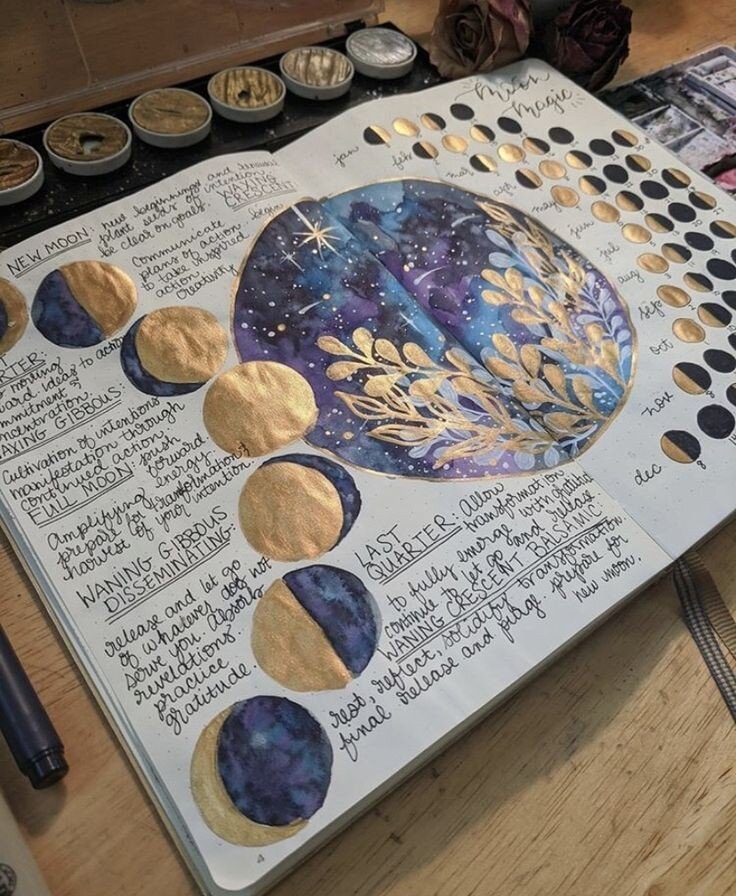 Moon
Magic
NEW MOON: new beginnings and
plant seeds of intention
be clear on goals.
WAXING
CRESCENT
begin
Communicate
plans of action
to take inspired
action
creativity
ward ideas to action
WAXING GIBBOUS:
Cultivation of intentions
manifestation through
continued action.
FULL MOON: push
forward.
Amplifying energy.
prepare for transformation &
harvest of your intention.
WANING GIBBOUS
DISSEMINATING:
release and let go
of whatever does not
serve you. Absorb
revelations
practice
gratitude.
LAST
QUARTER: Allow
transformation
to fully emerge with gratitude
continue to let go and release
WANING CRESCENT BALSAMIC
rest, reflect, solidify transformation
final release and purge. prepare for
new moon.
jan
feb
mar
apr
may
jun
jul
aug
sep
oct
nov
dec
4